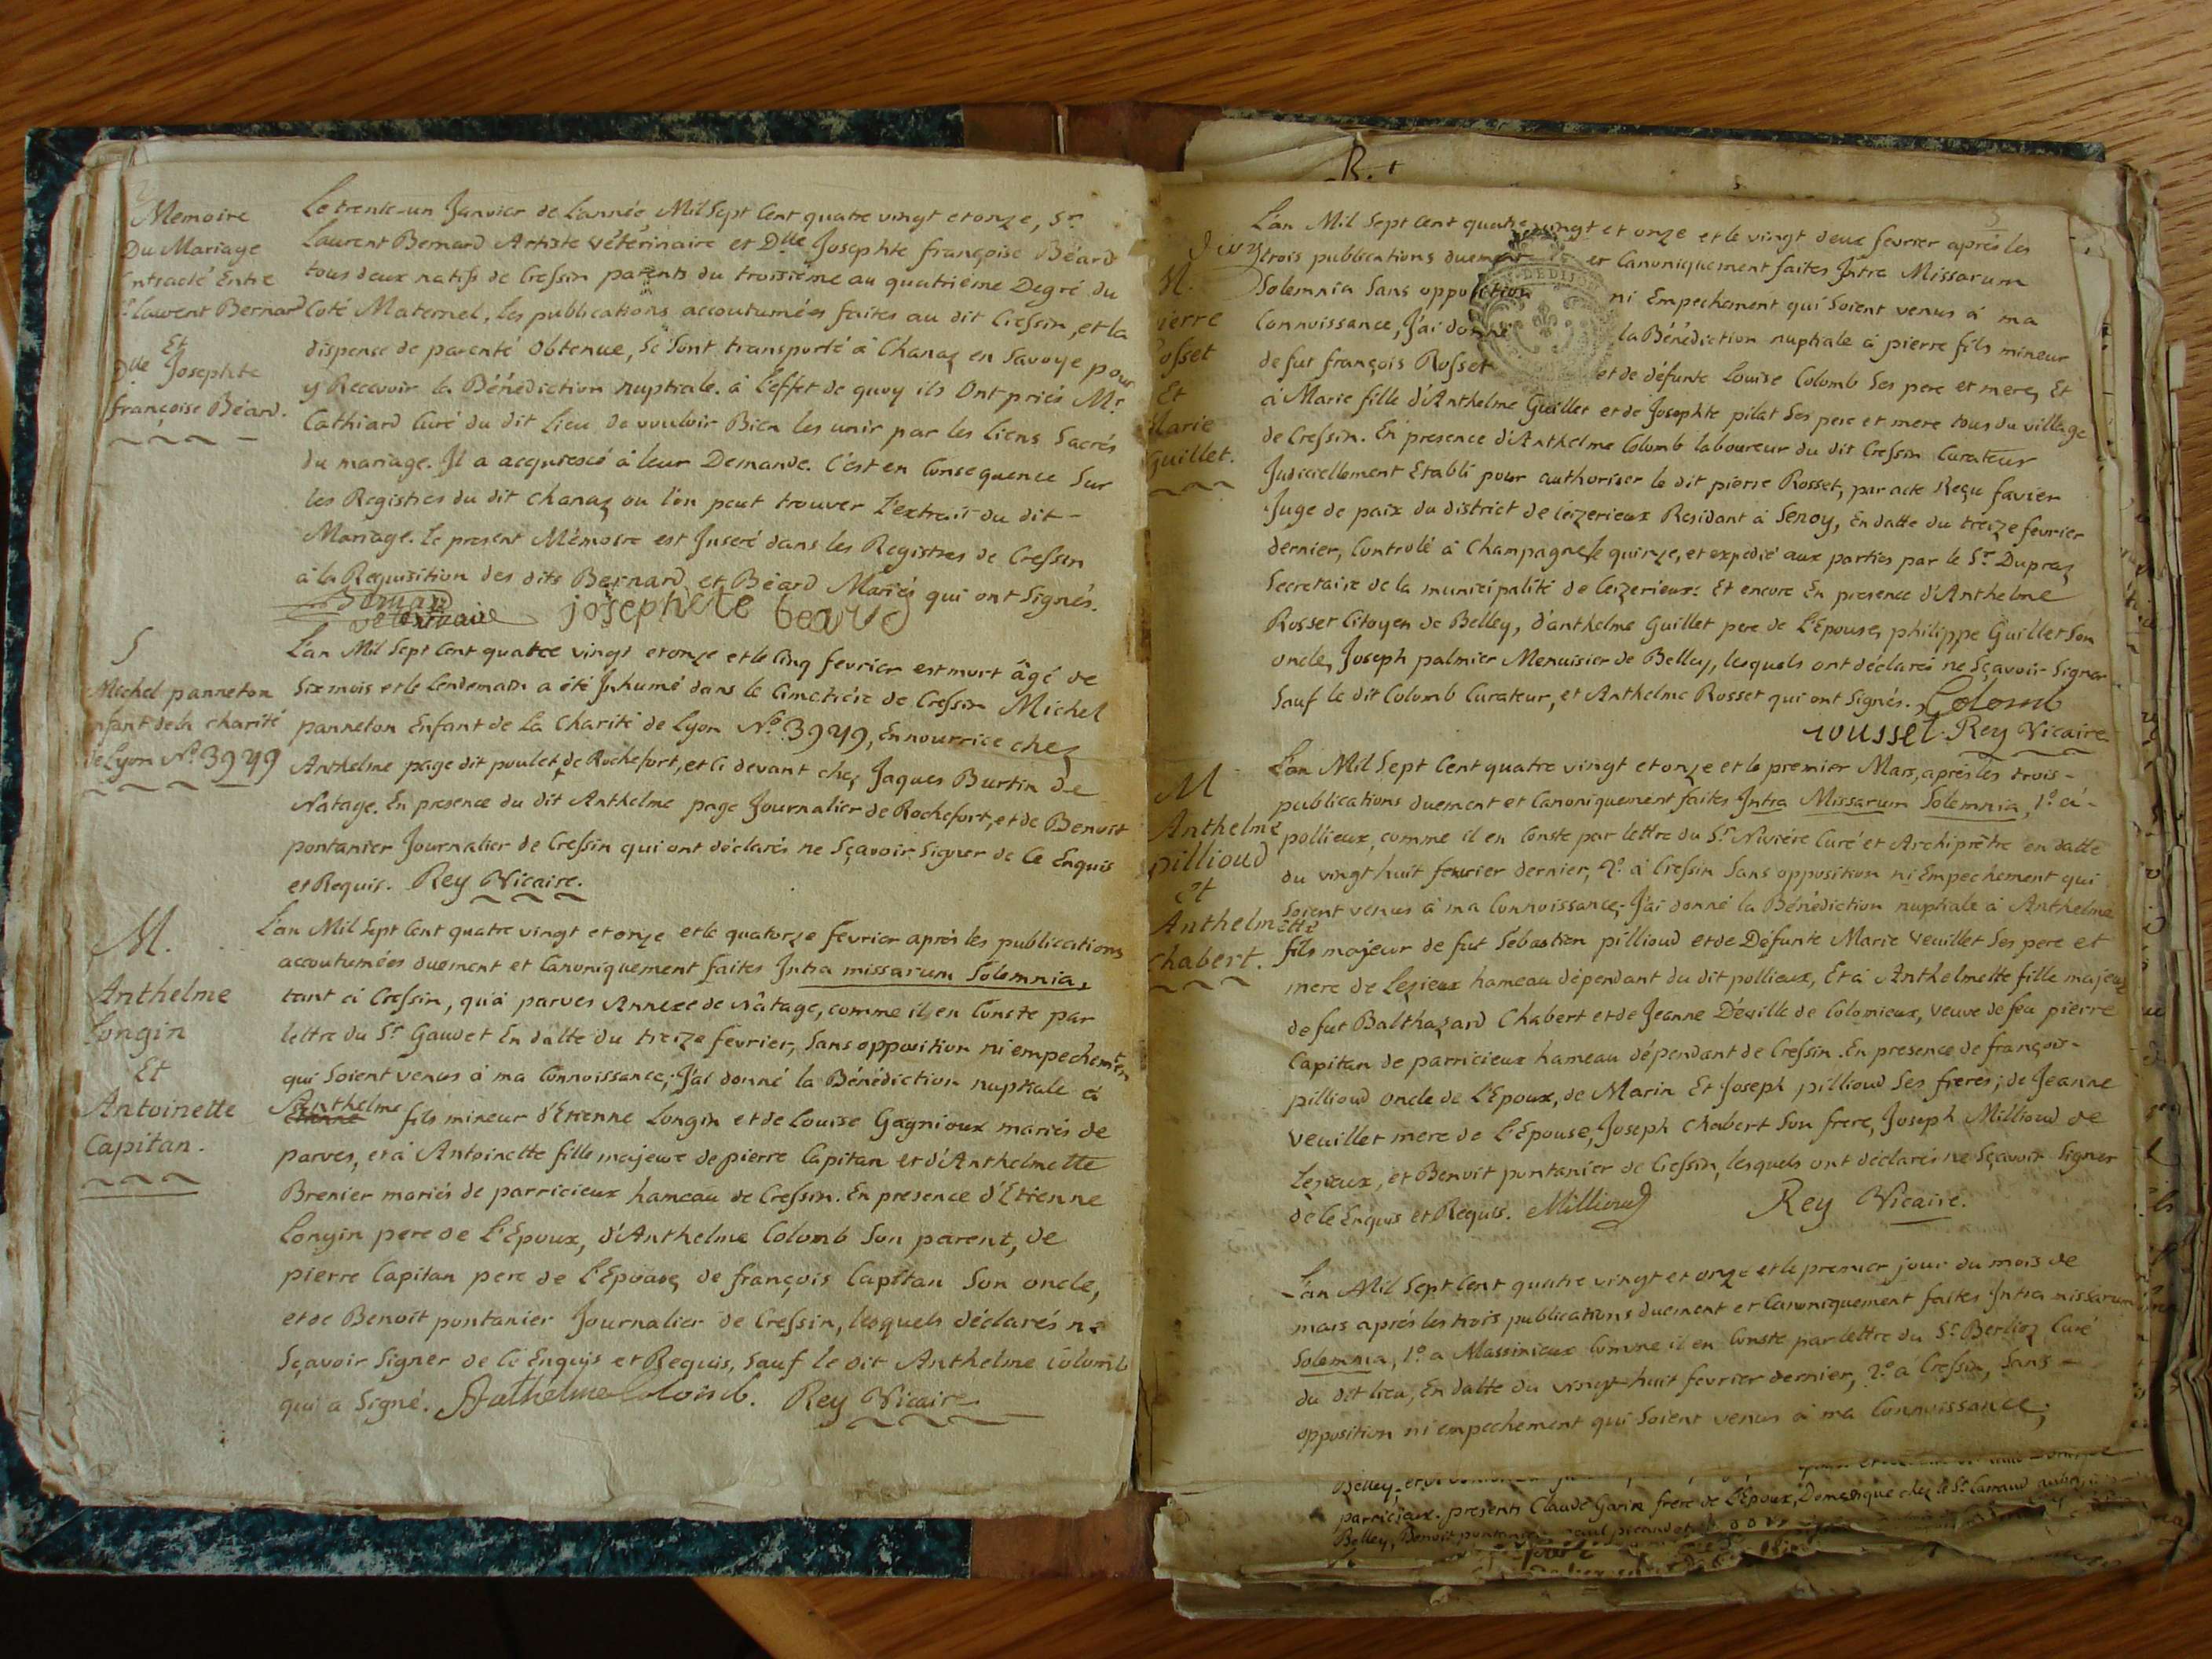 Memoire
Du Mariage
Contracté Entre
Sr. Laurent Bernard
Et
Dlle Josephte
françoise Béard.
Le trente-un Janvier de Lannée Mil Sept Cent quatre vingt et onze, Sr.
Laurent Bernard Artiste vétérinaire et Dlle Josephte françoise Béard
tous deux natifs de Cressin parents du troisième au quatrième Degré du
Coté Maternel, les publications accoutumées faites au dit Cressin, et la
dispense de parenté obtenue, se sont transporté à Chanaz en Savoye pour
y Recevoir la Bénédiction nuptiale. à l'effet de quoy ils Ont priés Mr.
Cathiard Curé du dit Lieu de vouloir Bien les unir par les liens Sacrés
du mariage. Il a acquiescé à leur Demande. C'est en Consequence Sur
les Registres du dit Chanaz ou l'on peut trouver L'extrait du dit -
Mariage. Le present Mémoire est Inseré dans les Registres de Cressin
à la Requisition des dits Bernard et Béard Mariés qui ont Signés.
Bernard
vétérinaire josephete beard
S
Michel panneton
Enfant de la charité
de Lyon No. 3949
L'an Mil Sept Cent quatre vingt et onze et le Cinq fevrier est mort âgé de
Six mois et le Lendemain a été Inhumé dans le Cimetière de Cressin Michel
panneton Enfant de La Charité de Lyon No. 3949, En nourrice chez
Anthelme page dit poulet de Rochefort, et Ci devant chez Jaques Burtin de
Natage. En presence du dit Anthelme page Journalier de Rochefort, et de Benoit
pontanier Journalier de Cressin qui ont déclarés ne Sçavoir Signer de Ce Enquis
et Requis. Rey Vicaire.
M.
Anthelme
Longin
Et
Antoinette
Capitan.
L'an Mil Sept Cent quatre vingt et onze et le quatorze fevrier après les publications
accoutumées duement et Canoniquement faites Intra missarum Solemnia,
tant à Cressin, qu'à parves Annexe de Nâtage, comme il en Conste par
lettre du Sr. Gaudet En datte du treize fevrier, Sans opposition ni empechement
qui Soient venus à ma Connoissance; J'ai donné la Bénédiction nuptiale à
Anthelme
Etienne fils mineur d'Etienne Longin et de Louise Gagnioux mariés de
parves, et à Antoinette fille majeure de pierre Capitan et d'Anthelmette
Brenier mariés de parricieux hameau de Cressin. En presence d'Etienne
Longin pere de L'Epoux, d'Anthelme Colomb Son parent, de
pierre Capitan pere de L'Epouse, de françois Capitan Son oncle,
et de Benoit pontanier Journalier de Cressin, lesquels déclarés ne
Sçavoir Signer de Ce Enquis et Requis, Sauf le dit Anthelme Colomb
qui a Signé. Anthelme Colomb. Rey Vicaire
M.
Pierre
Rosset
Et
Marie
Guillet.
L'an Mil Sept Cent quatre vingt et onze et le vingt deux fevrier après les
trois publications duement et Canoniquement faites Intra Missarum
Solemnia Sans opposition ni Empechement qui Soient venus à ma
Connoissance, J'ai donné la Bénédiction nuptiale à pierre fils mineur
de fut françois Rosset et de défunte Louise Colomb Ses pere et mere, Et
à Marie fille d'Anthelme Guillet et de Josephte pilat Ses pere et mere tous du village
de Cressin. En presence d'Anthelme Colomb laboureur du dit Cressin Curateur
Judiciellement Etabli pour authoriser le dit pierre Rosset, par acte Reçu favier
Juge de paix du district de Ceizerieux Residant à Senoy, En datte du treize fevrier
dernier, Controlé à Champagne le quinze, et expedié aux parties par le Sr. Dupraz
Secretaire de la municipalité de Ceizerieux: Et encore En presence d'Anthelme
Rosset Citoyen de Belley, d'anthelme Guillet pere de L'Epouse, philippe Guillet Son
oncle, Joseph palmier Menuisier de Belley, lesquels ont déclarés ne Sçavoir Signer
Sauf le dit Colomb Curateur, et Anthelme Rosset qui ont Signés. Colomb
rousset Rey Vicaire
M
Anthelme
pillioud
et
Anthelmette
Chabert.
L'an Mil Sept Cent quatre vingt et onze et le premier Mars, après les trois -
publications duement et Canoniquement faites Intra Missarum Solemnia, 1o. à -
pollieux, comme il en Conste par lettre du Sr. Nivière Curé et Archiprêtre en datte
du vingt huit fevrier dernier, 2o. à Cressin Sans opposition ni Empechement qui
Soient venus à ma Connoissance; J'ai donné la Bénédiction nuptiale à Anthelme
fils majeur de fut Sébastien pillioud et de Défunte Marie Veuillet Ses pere et
mere de Lezieux hameau dépendant du dit pollieux, Et à Anthelmette fille majeure
de fut Balthazard Chabert et de Jeanne Déville de Colomieux, veuve de feu pierre
Capitan de parricieux hameau dépendant de Cressin. En presence de françois -
pillioud oncle de L'Epoux, de Marin Et Joseph pillioud Ses freres; de Jeanne
Veuillet mere de L'Epouse, Joseph Chabert Son frere, Joseph Millioud de
Lezieux, et Benoit pontanier de Cressin, lesquels ont déclarés ne Sçavoir Signer
de Ce Enquis et Requis. Millioud Rey Vicaire.
L'an Mil Sept Cent quatre vingt et onze et le premier jour du mois de
mars après les trois publications duement et Canoniquement faites Intra missarum
Solemnia, 1o. a Massinieux Comme il en Conste par lettre du Sr. Berlioz Curé
du dit lieu, En datte du vingt-huit fevrier dernier, 2o. à Cressin, Sans -
opposition ni empechement qui Soient venus à ma Connoissance;
parricieux. presents Claude Garin frere de L'Epoux, Domestique chez le Sr.
Belley, Benoit pontanier